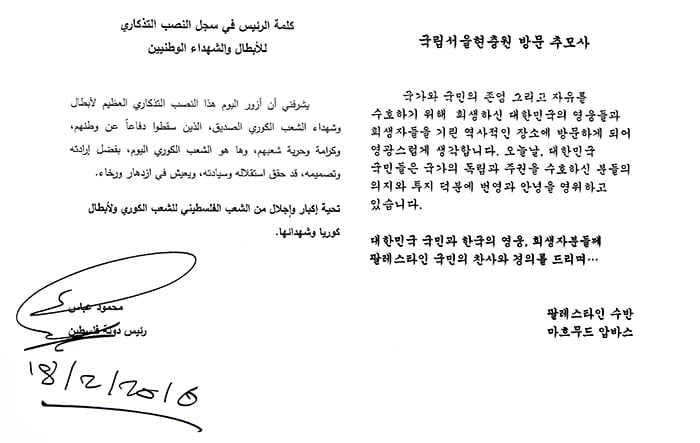 كلمة الرئيس في سجل النصب التذكاري
للأبطال والشهداء الوطنيين
يشرفني أن أزور اليوم هذا النصب التذكاري العظيم لأبطال
وشهداء الشعب الكوري الصديق، الذين سقطوا دفاعاً عن وطنهم،
وكرامة وحرية شعبهم، وها هو الشعب الكوري اليوم، بفضل إرادته
وتصميمه، قد حقق استقلاله وسيادته، ويعيش في ازدهار ورخاء.
تحية إكبار وإجلال من الشعب الفلسطيني للشعب الكوري ولأبطال
كوريا وشهدائها.
محمود عباس
رئيس دولة فلسطين
18/2/2016
국립서울현충원 방문 추모사
국가와 국민의 존엄 그리고 자유를
수호하기 위해 희생하신 대한민국의 영웅들과
희생자들을 기린 역사적인 장소에 방문하게 되어
영광스럽게 생각합니다. 오늘날, 대한민국
국민들은 국가의 독립과 주권을 수호하신 분들의
의지와 투지 덕분에 번영과 안녕을 영위하고
있습니다.
대한민국 국민과 한국의 영웅, 희생자분들께
팔레스타인 국민의 찬사와 경의를 드리며…
팔레스타인 수반
마흐무드 압바스